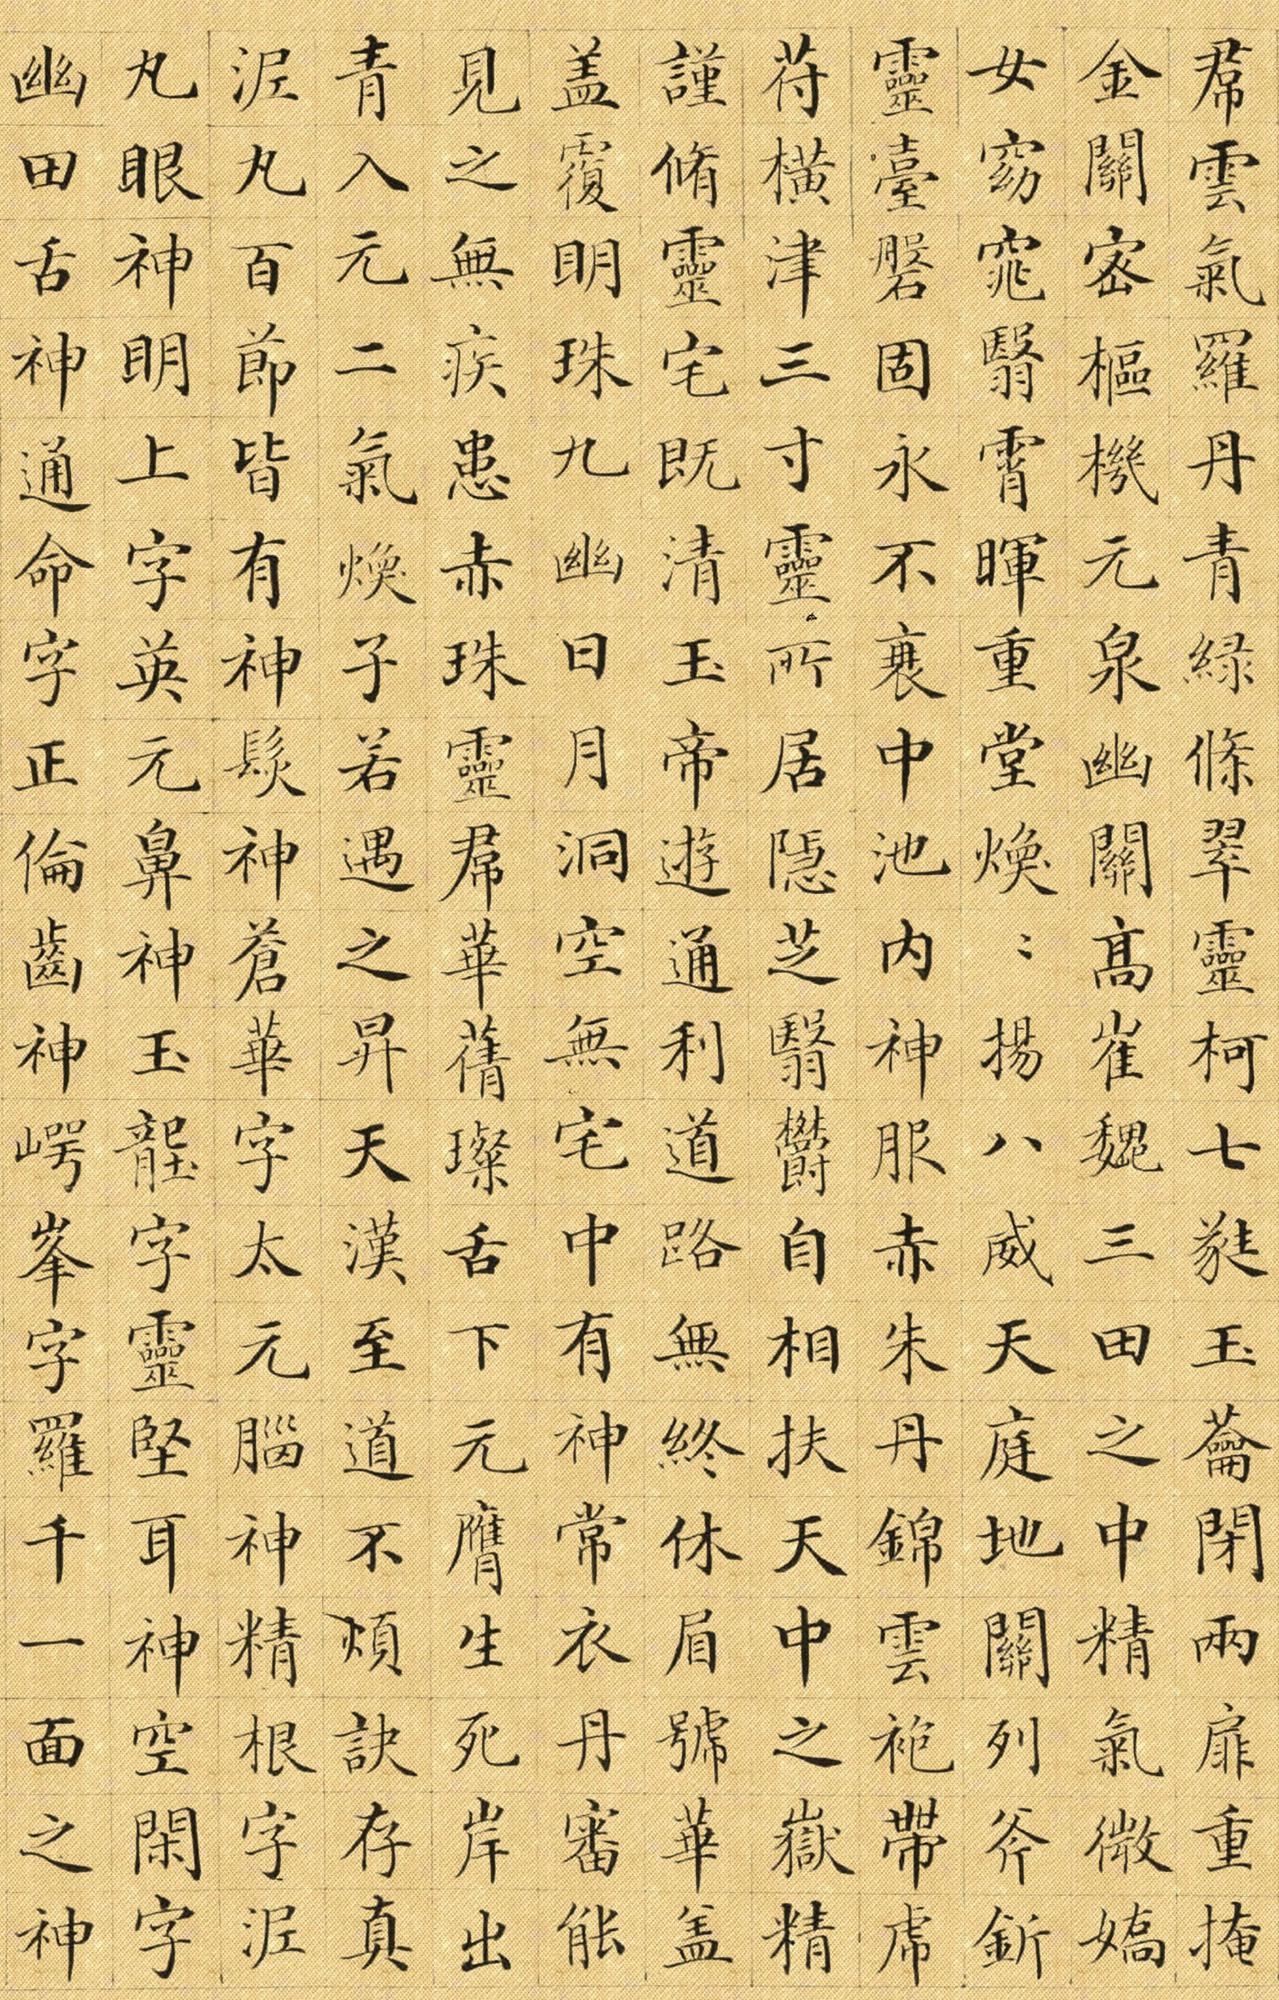 帬雲氣羅丹青緑條翠靈柯七蕤玉蘥閉兩扉重掩
金關密樞機元泉幽關髙崔巍三田之中精氣微嬌
女窈窕翳霄暉重堂煥〻揚八威天庭地關列斧釿
靈臺磐固永不衰中池内神服赤朱丹錦雲袍帶虎
苻橫津三寸靈所居隱芝翳欝自相扶天中之嶽精
謹脩靈宅既清玉帝遊通利道路無終休眉號華盖
盖覆明珠九幽日月洞空無宅中有神常衣丹審能
見之無疾患赤珠靈帬華蒨璨舌下元膺生死岸出
青入元二氣煥子若遇之昇天漢至道不煩訣存真
泥丸百節皆有神髮神蒼華字太元腦神精根字泥
丸眼神明上字英元鼻神玉壟字靈堅耳神空閑字
幽田舌神通命字正倫齒神崿峯字羅千一面之神